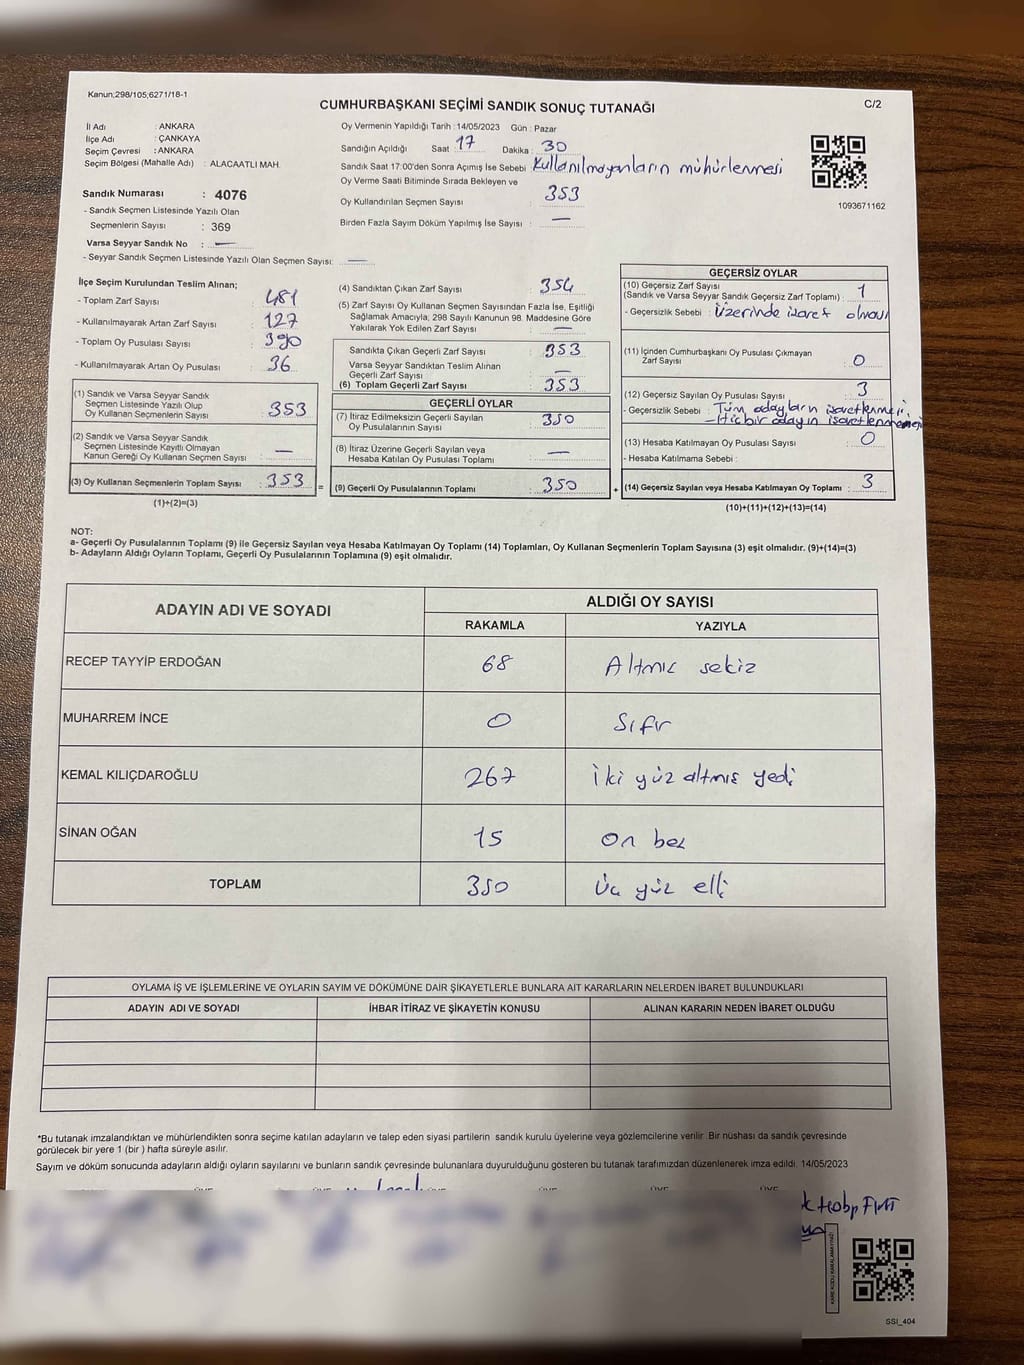 Kanun;298/105;6271/18-1
CUMHURBAŞKANI SEÇİMİ SANDIK SONUÇ TUTANAĞI
C/2
İl Adı : ANKARA
İlçe Adı : ÇANKAYA
Seçim Çevresi : ANKARA
Seçim Bölgesi (Mahalle Adı) : ALACAATLI MAH.
Sandık Numarası : 4076
- Sandık Seçmen Listesinde Yazılı Olan
Seçmenlerin Sayısı : 369
Varsa Seyyar Sandık No : —
- Seyyar Sandık Seçmen Listesinde Yazılı Olan Seçmen Sayısı: —
Oy Vermenin Yapıldığı Tarih : 14/05/2023 Gün : Pazar
Sandığın Açıldığı Saat : 17 Dakika : 30
Sandık Saat 17:00'den Sonra Açımış İse Sebebi : Kullanılmayanların mühürlenmesi
Oy Verme Saati Bitiminde Sırada Bekleyen ve
Oy Kullandırılan Seçmen Sayısı : 353
Birden Fazla Sayım Döküm Yapılmış İse Sayısı : —
1093671162
İlçe Seçim Kurulundan Teslim Alınan;
- Toplam Zarf Sayısı : 481
- Kullanılmayarak Artan Zarf Sayısı : 127
- Toplam Oy Pusulası Sayısı : 390
- Kullanılmayarak Artan Oy Pusulası : 36
(1) Sandık ve Varsa Seyyar Sandık
Seçmen Listesinde Yazılı Olup
Oy Kullanan Seçmenlerin Sayısı : 353
(2) Sandık ve Varsa Seyyar Sandık
Seçmen Listesinde Kayıtlı Olmayan
Kanun Gereği Oy Kullanan Seçmen Sayısı : —
(3) Oy Kullanan Seçmenlerin Toplam Sayısı : 353
(1)+(2)=(3)
(4) Sandıktan Çıkan Zarf Sayısı : 354
(5) Zarf Sayısı Oy Kullanan Seçmen Sayısından Fazla İse, Eşitliği
Sağlamak Amacıyla; 298 Sayılı Kanunun 98. Maddesine Göre
Yakılarak Yok Edilen Zarf Sayısı : —
Sandıkta Çıkan Geçerli Zarf Sayısı : 353
Varsa Seyyar Sandıktan Teslim Alınan
Geçerli Zarf Sayısı : —
(6) Toplam Geçerli Zarf Sayısı : 353
GEÇERLİ OYLAR
(7) İtiraz Edilmeksizin Geçerli Sayılan
Oy Pusulalarının Sayısı : 350
(8) İtiraz Üzerine Geçerli Sayılan veya
Hesaba Katılan Oy Pusulası Toplamı : —
= (9) Geçerli Oy Pusulalarının Toplamı : 350
GEÇERSİZ OYLAR
(10) Geçersiz Zarf Sayısı
(Sandık ve Varsa Seyyar Sandık Geçersiz Zarf Toplamı) : 1
- Geçersizlik Sebebi : Üzerinde işaret olması
(11) İçinden Cumhurbaşkanı Oy Pusulası Çıkmayan
Zarf Sayısı : 0
(12) Geçersiz Sayılan Oy Pusulası Sayısı : 3
- Geçersizlik Sebebi : Tüm adayların işaretlenmesi,
- Hiçbir adayın işaretlenmemesi
(13) Hesaba Katılmayan Oy Pusulası Sayısı : 0
- Hesaba Katılmama Sebebi :
+ (14) Geçersiz Sayılan veya Hesaba Katılmayan Oy Toplamı : 3
(10)+(11)+(12)+(13)=(14)
NOT:
a- Geçerli Oy Pusulalarının Toplamı (9) ile Geçersiz Sayılan veya Hesaba Katılmayan Oy Toplamı (14) Toplamları, Oy Kullanan Seçmenlerin Toplam Sayısına (3) eşit olmalıdır. (9)+(14)=(3)
b- Adayların Aldığı Oyların Toplamı, Geçerli Oy Pusulalarının Toplamına (9) eşit olmalıdır.
ADAYIN ADI VE SOYADI
ALDIĞI OY SAYISI
RAKAMLA YAZIYLA
RECEP TAYYİP ERDOĞAN 68 Altmış sekiz
MUHARREM İNCE 0 Sıfır
KEMAL KILIÇDAROĞLU 267 İki yüz altmış yedi
SİNAN OĞAN 15 On beş
TOPLAM 350 Üç yüz elli
OYLAMA İŞ VE İŞLEMLERİNE VE OYLARIN SAYIM VE DÖKÜMÜNE DAİR ŞİKAYETLERLE BUNLARA AİT KARARLARIN NELERDEN İBARET BULUNDUKLARI
ADAYIN ADI VE SOYADI İHBAR İTİRAZ VE ŞİKAYETİN KONUSU ALINAN KARARIN NEDEN İBARET OLDUĞU
*Bu tutanak imzalandıktan ve mühürlendikten sonra seçime katılan adayların ve talep eden siyasi partilerin sandık kurulu üyelerine veya gözlemcilerine verilir. Bir nüshası da sandık çevresinde
görülecek bir yere 1 (bir) hafta süreyle asılır.
Sayım ve döküm sonucunda adayların aldığı oyların sayılarını ve bunların sandık çevresinde bulunanlara duyurulduğunu gösteren bu tutanak tarafımızdan düzenlenerek imza edildi. 14/05/2023
KARE KODU KARALAMAYINIZ!
SSI_404